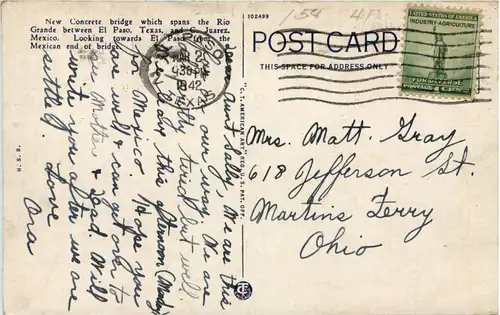 New Concrete bridge which spans the Rio
Grande between El Paso, Texas, and C. Juarez,
Mexico. Looking towards El Paso from the
Mexican end of bridge.
102499
154
POST CARD
THIS SPACE FOR ADDRESS ONLY
EL PASO
MAR
930 PM
1942
TEXAS
UNITED STATES OF AMERICA
INDUSTRY AGRICULTURE
FOR DEFENSE
POSTAGE 1 CENT
"C. T. AMERICAN ART" REG. U. S. PAT. OFF.
Dear Aunt Sally, We are this
far on our way. We are
pretty tired but well.
Will leave this afternoon (Monday)
for Mexico. Hope you
are well & can get over to
see Mother & Dad. Will
write you after we are
settled. Love
Ora
Mrs. Matt. Gray
618 Jefferson St.
Martins Ferry
Ohio